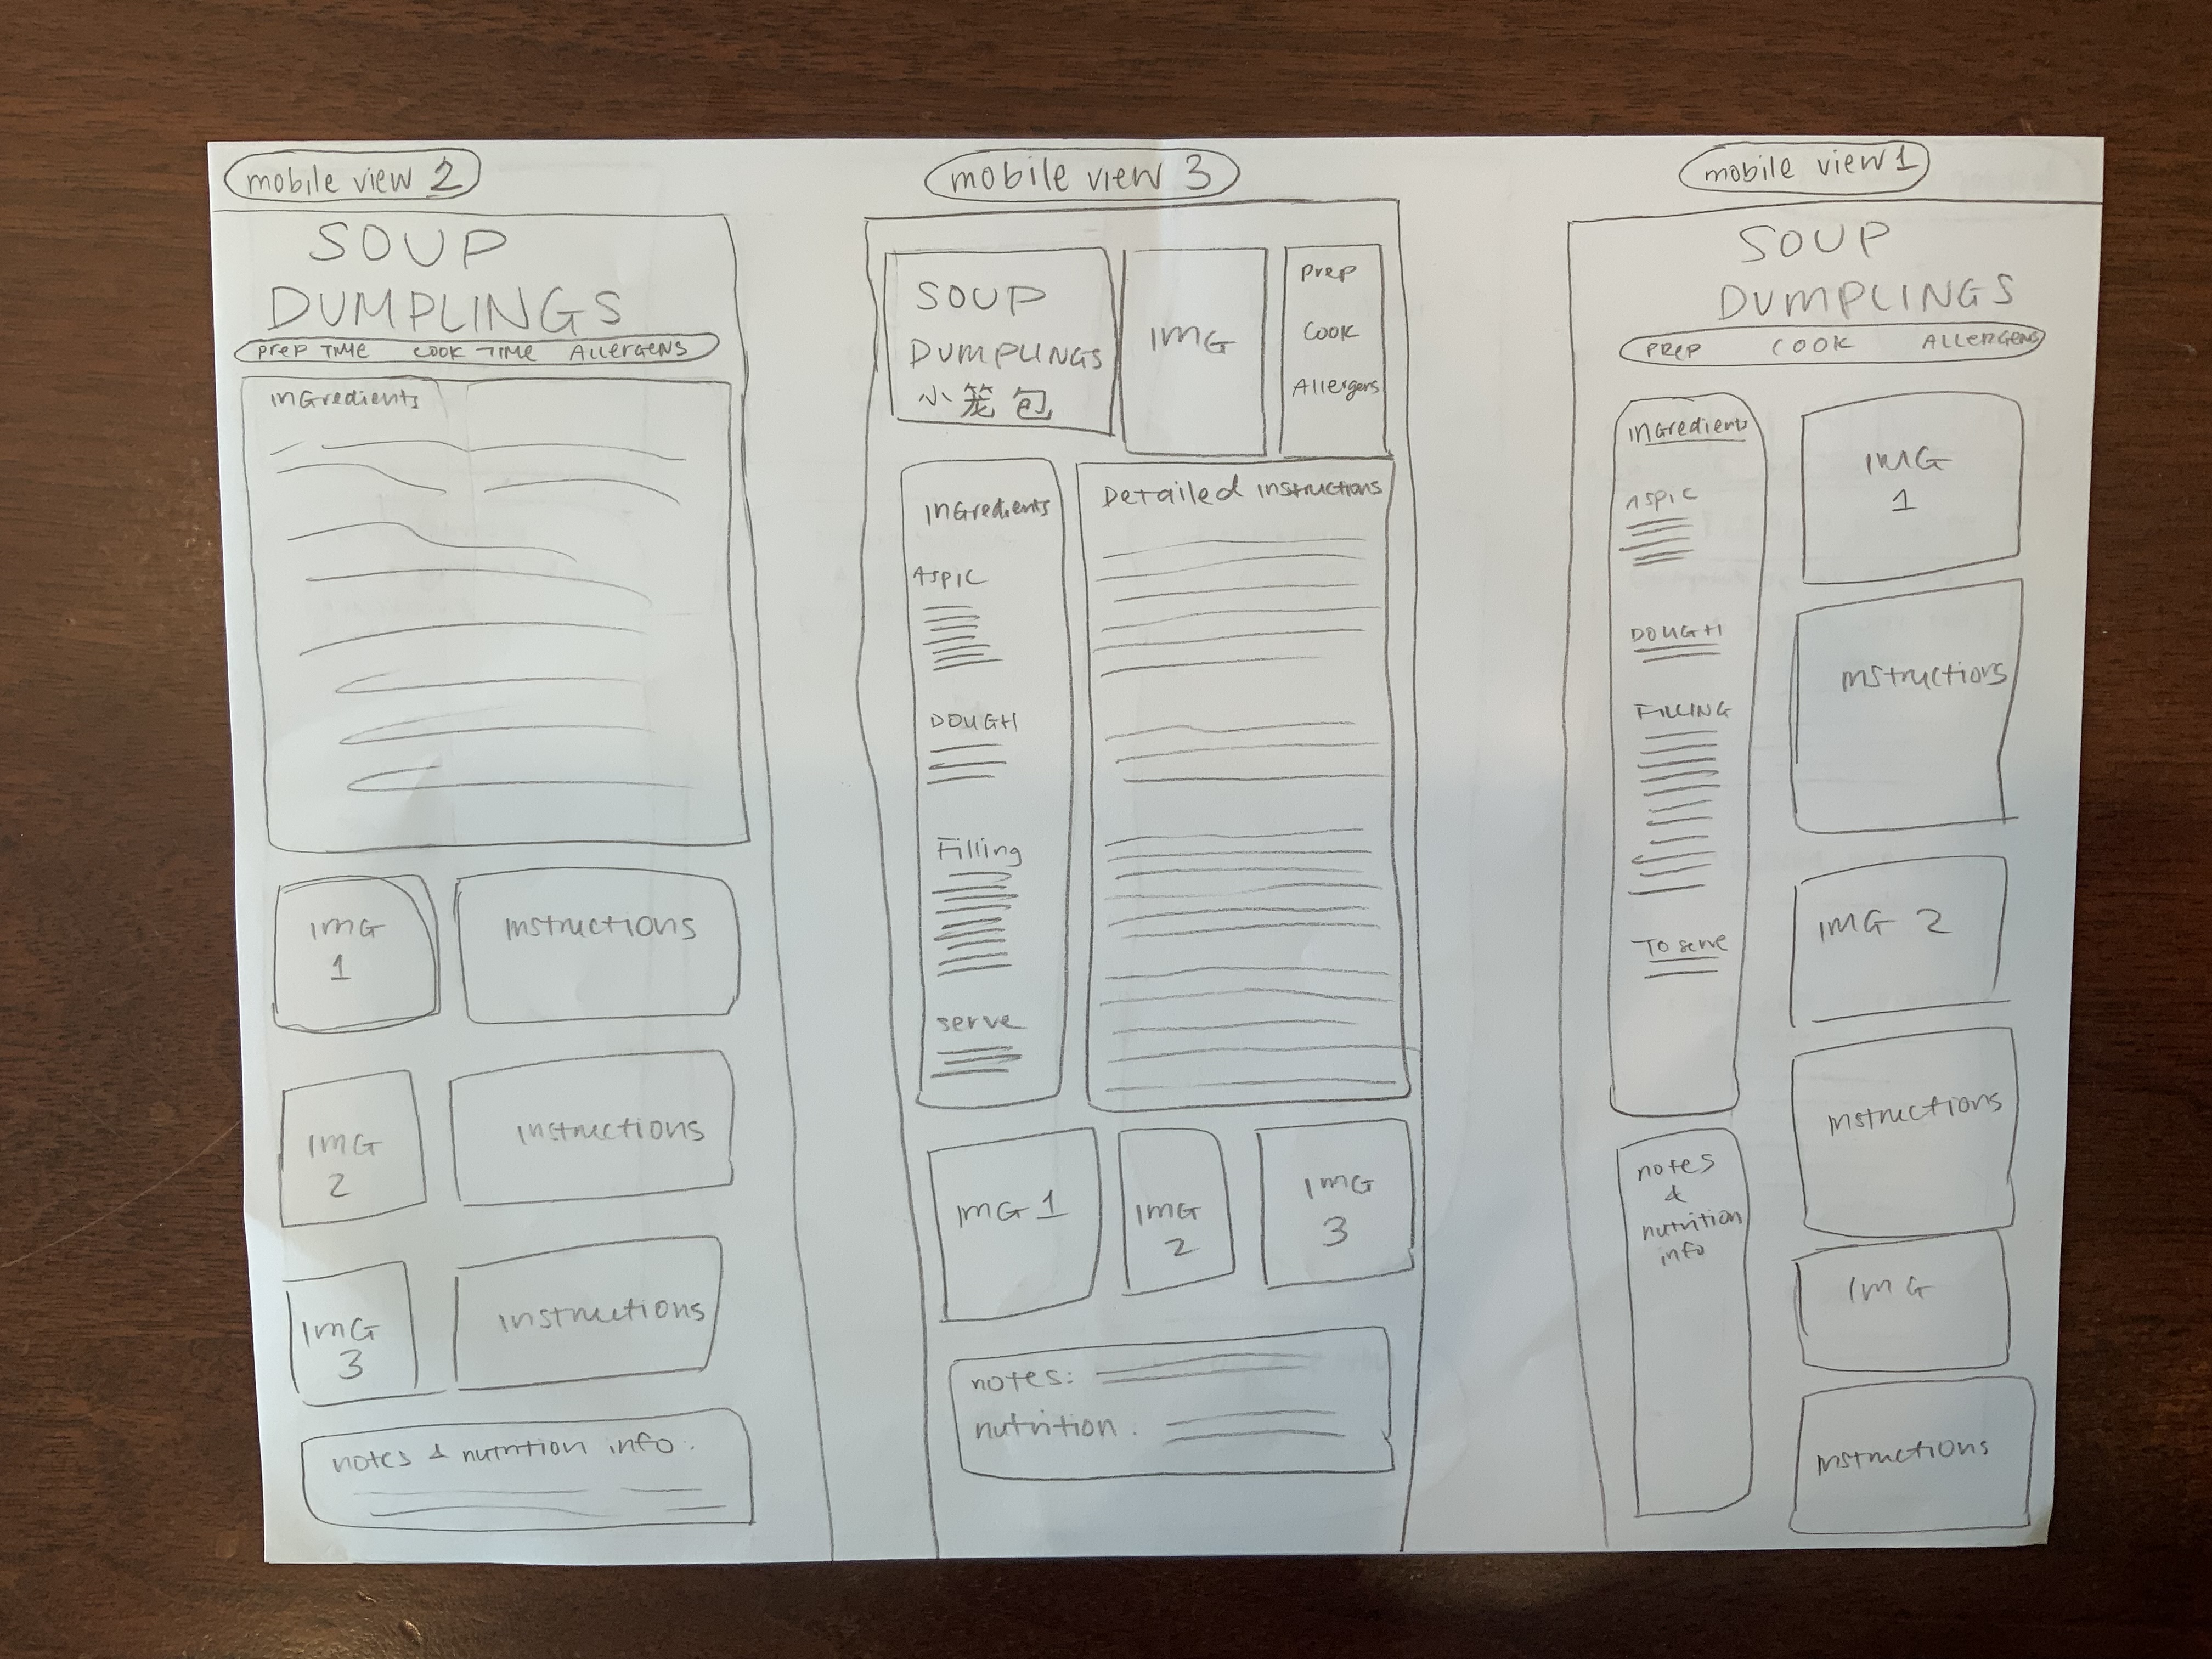 mobile view 2
SOUP
DUMPLINGS
PREP TIME COOK TIME ALLERGENS
INGredients
IMG
1
INSTructions
IMG
2
INSTructions
IMG
3
INSTructions
notes & nutrition info:
mobile view 3
SOUP
DUMPLINGS
小笼包
IMG
Prep
Cook
Allergens
INGredients
ASPIC
DOUGH
Filling
serve
Detailed instructions
IMG 1
IMG
2
IMG
3
notes:
nutrition:
mobile view 1
SOUP
DUMPLINGS
PREP COOK ALLERGENS
INGredients
ASPIC
DOUGH
FILLING
To serve
notes
&
nutrition
info
IMG
1
INSTructions
IMG 2
INSTructions
IMG
INSTructions